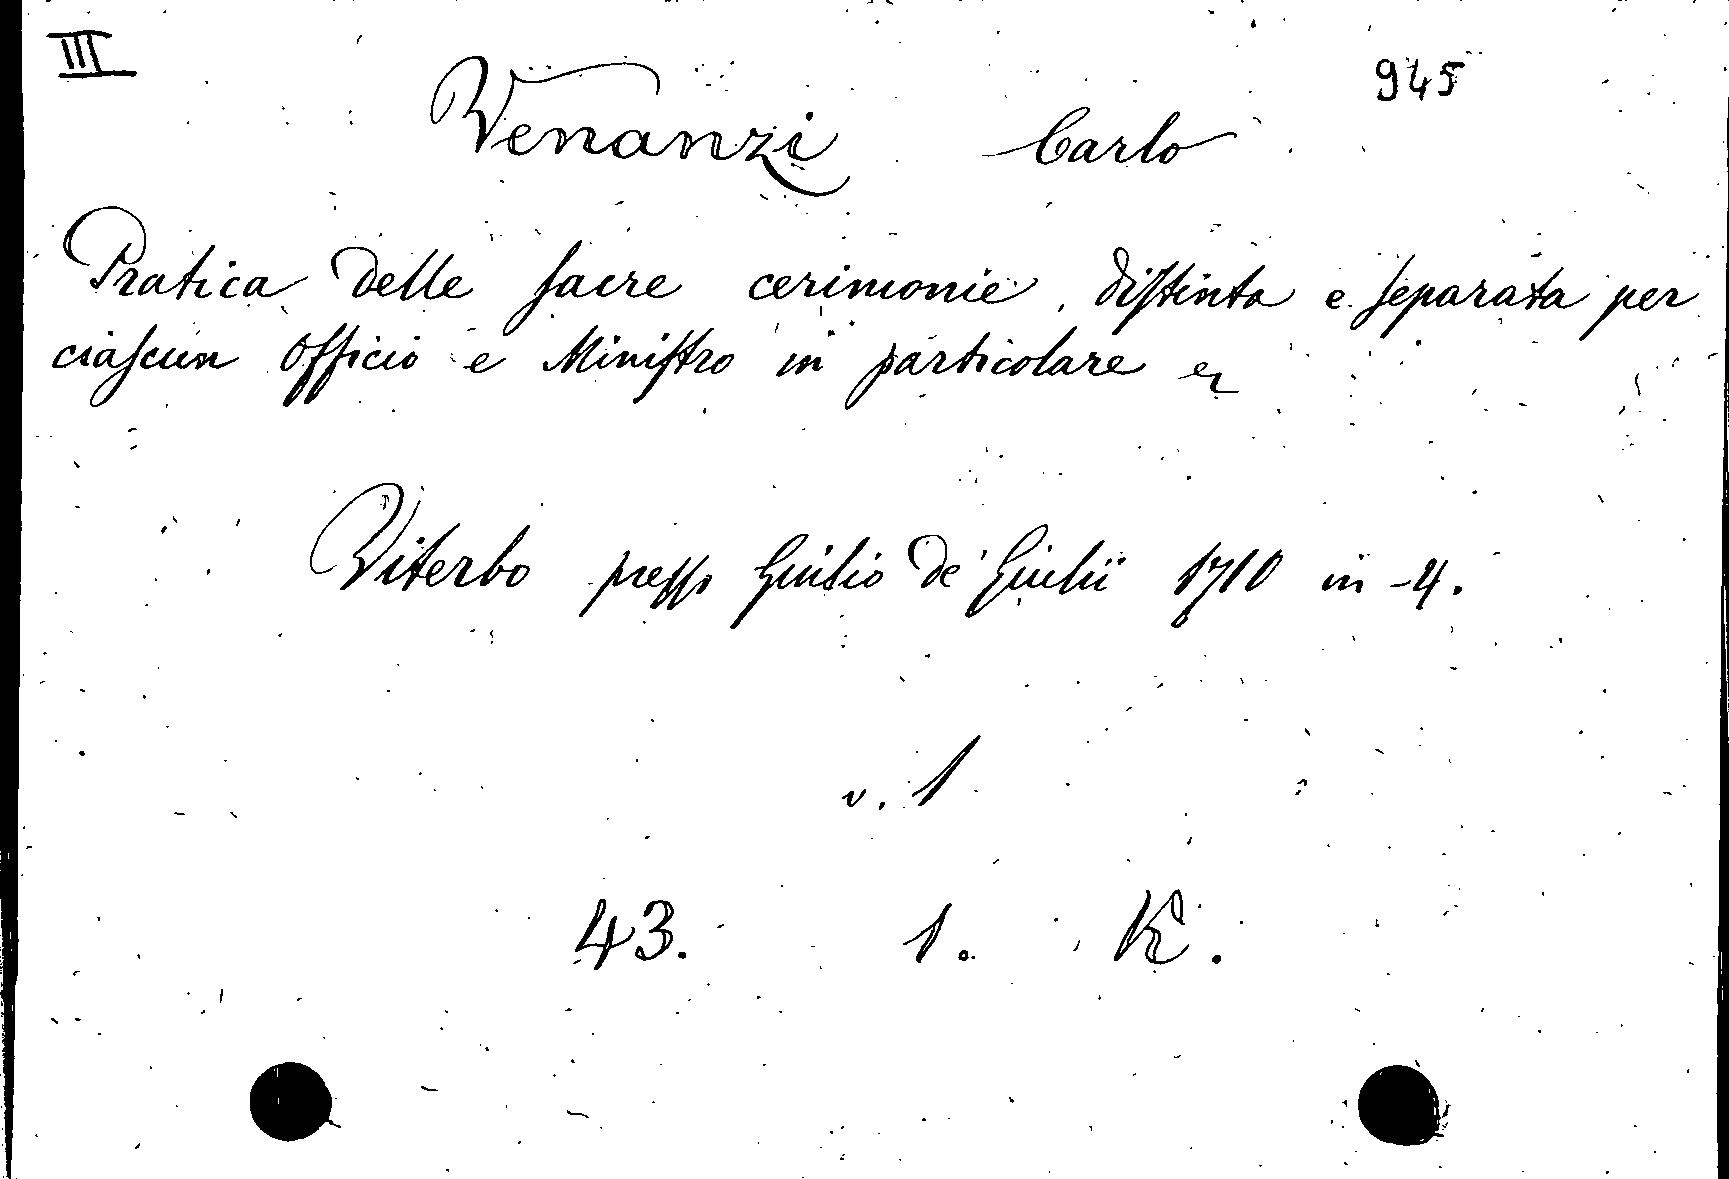 III
945
Venanzi Carlo
Pratica delle sacre cerimonie, distinta e separata per
ciascun Officio e Ministro in particolare
Viterbo presso Giulio de' Giulii 1710 in-4.
v. 1
43. 1. K.